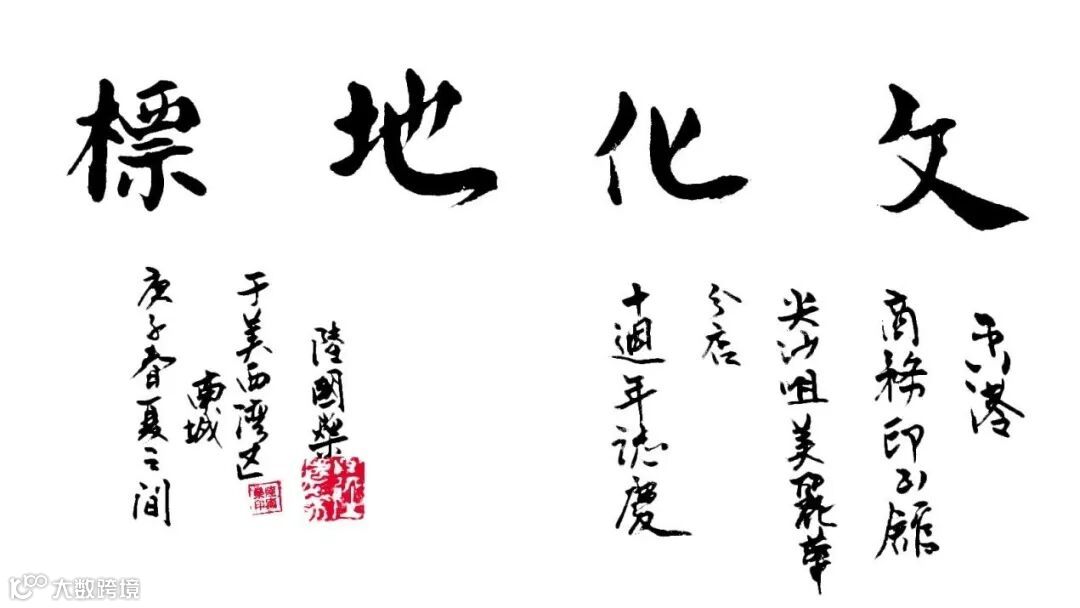 文化地標
香港
商務印书館
尖沙咀美麗華
分店
十週年誌慶
陸國燊
于美西灣区
南城
庚子春夏之間
陸國燊印
大数跨境